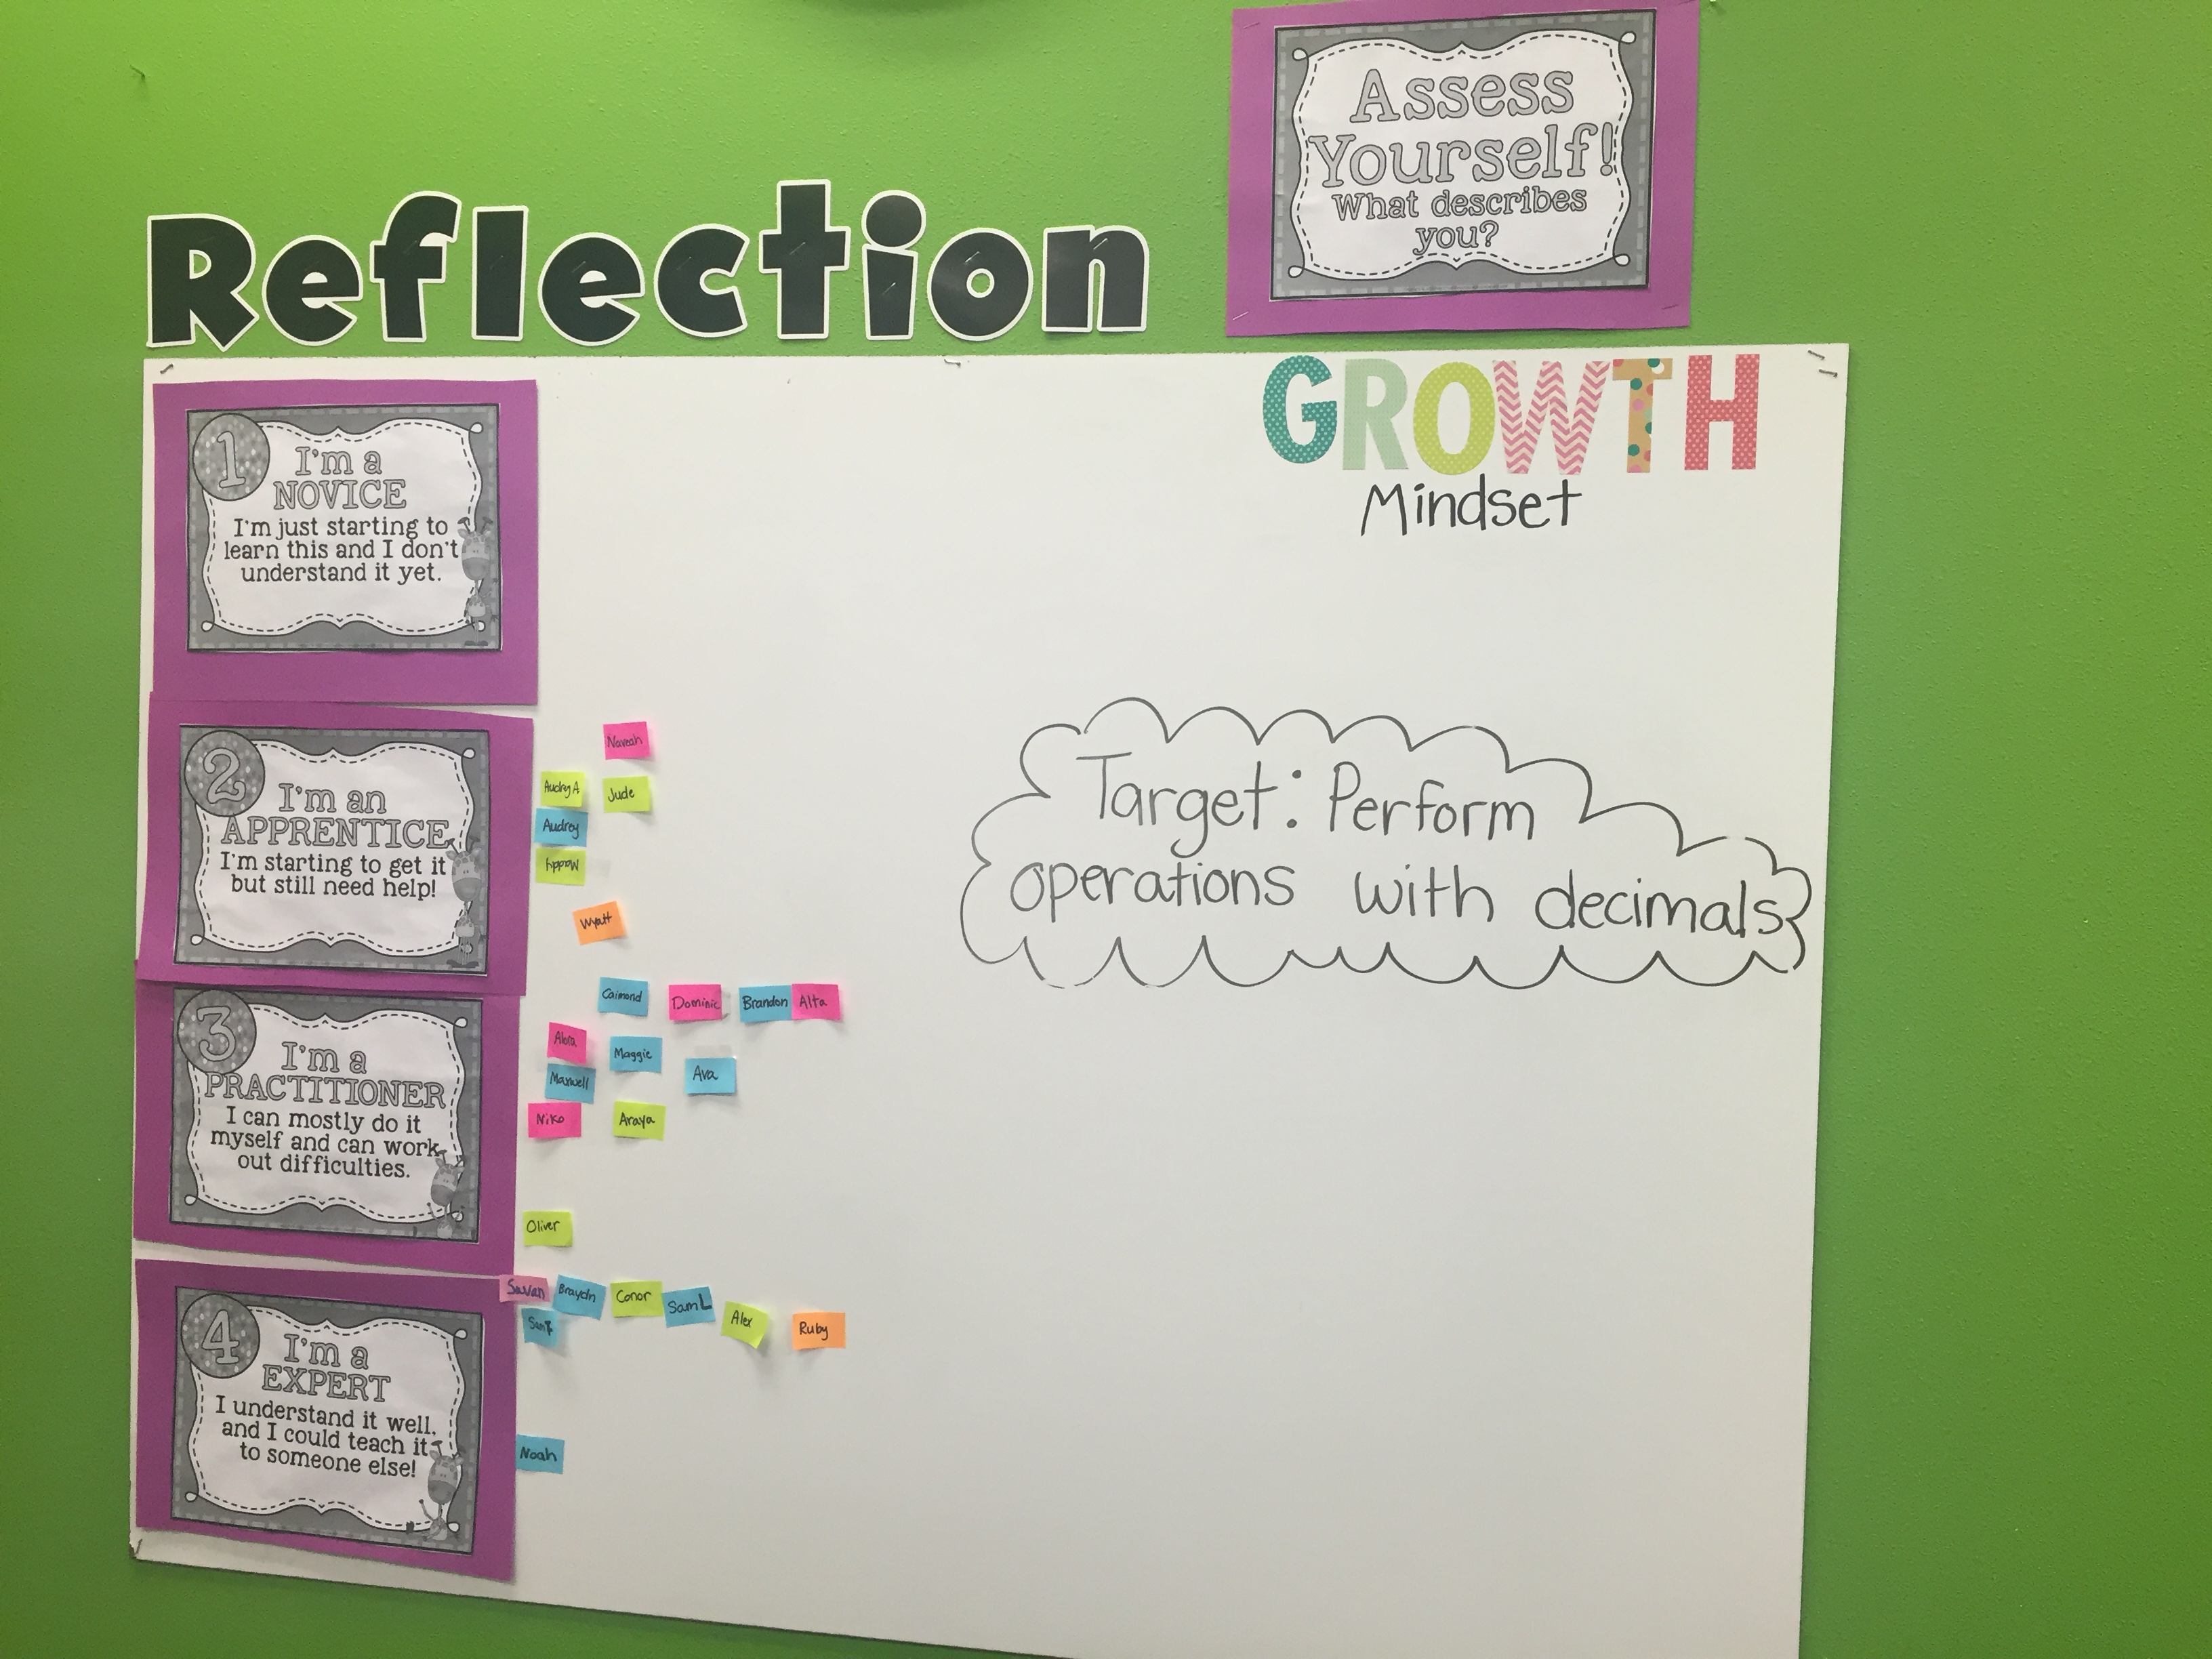 Assess
Yourself!
What describes
you?
Reflection
GROWTH
Mindset
1
I'm a
NOVICE
I'm just starting to
learn this and I don't
understand it yet.
2
I'm an
APPRENTICE
I'm starting to get it
but still need help!
Naveah
Audry A
Jude
Audrey
Maddy
Wyatt
Target: Perform
operations with decimals
3
I'm a
PRACTITIONER
I can mostly do it
myself and can work
out difficulties.
Caimond
Dominic
Brandon
Alta
Maggie
Maxwell
Ava
Niko
Araya
Oliver
4
I'm a
EXPERT
I understand it well,
and I could teach it
to someone else!
Savan
Braydn
Conor
Sam L
Alex
Ruby
Noah